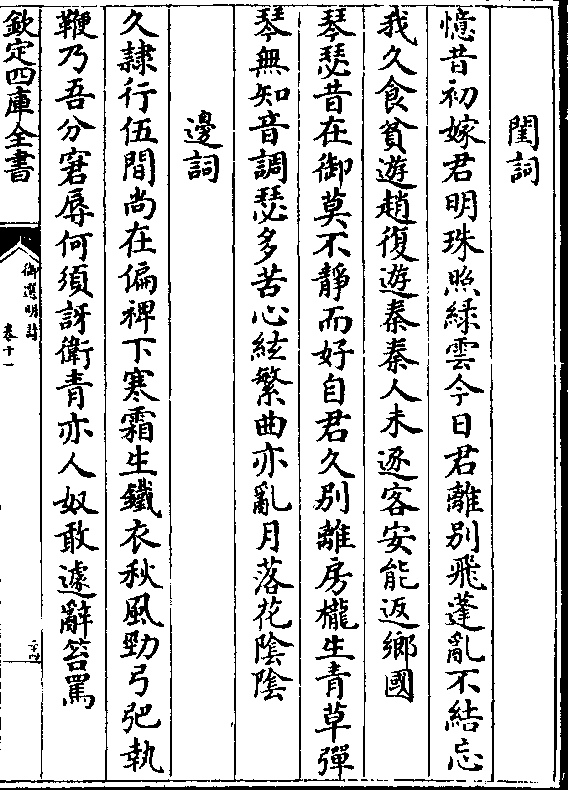 閨詞
憶昔初嫁君明珠照緑雲今日君離别飛蓬亂不結忘
我久食貧遊趙復遊秦秦人未逐客安能返鄉國
琴瑟昔在御莫不靜而好自君久别離房櫳生青草彈
琴無知音調瑟多苦心絃繁曲亦亂月落花陰陰
邊詞
久隷行伍間尚在偏裨下寒霜生鐵衣秋風勁弓弝執
鞭乃吾分窘辱何須訝衛青亦人奴敢遽辭笞罵
欽定四庫全書
御選明詩
卷十一
二十四